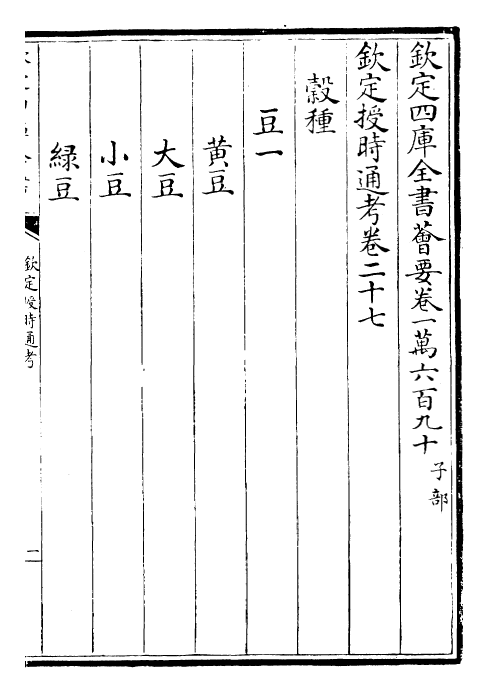 欽定四庫全書薈要卷一萬六百九十 子部
欽定授時通考卷二十七
穀種
豆一
黄豆
大豆
小豆
緑豆
欽定授時通考